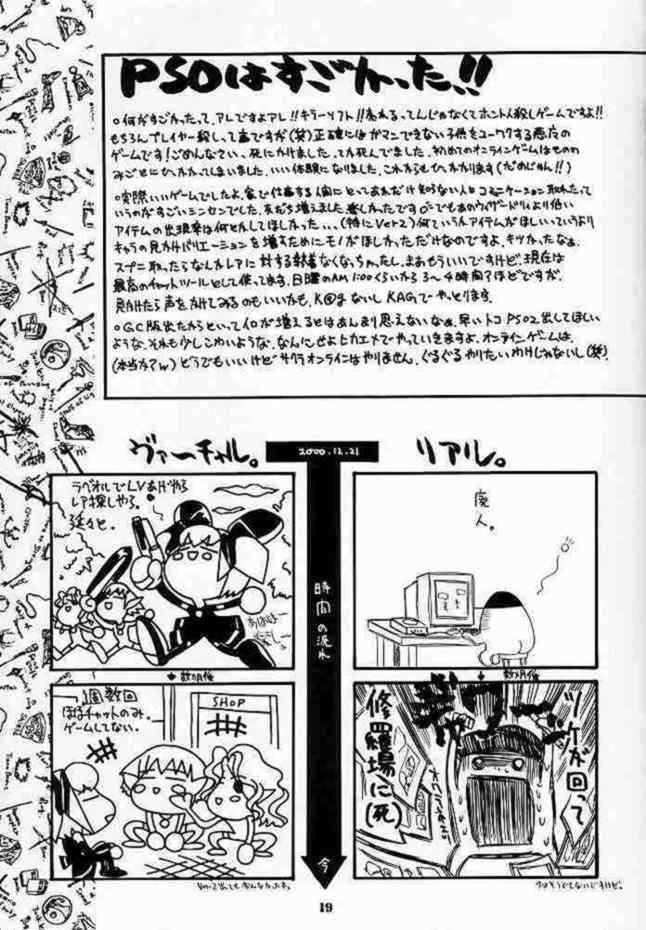 PSOはすごかった!!
○何がすごかったって、アレですよアレ!!キラーソフト!!売れるってんじゃなくてホントに人殺しゲームですよ!!
もちろんプレイヤー殺しって事ですが(笑)正確にはガマンできない子供をユーワクする悪度の
ゲームです!ごめんなさい、死にかけました。てか死んでました。初めてのオンラインゲームはものの
みごとにひっかかってしまいました。いい体験になりました。これからもひっかかります(だめじゃん!!)
○実際いいゲームでしたよ。家で仕事する人間にとってあれだけ知らない人とコミュニケーション取れたって
いうのがすごいシンセンでした。友だち増えました。楽しかったです。でもあのウィザードリィより低い
アイテムの出現率は何とかしてほしかった...(特にVer2)何ていうかアイテムがほしいっていうより
キャラの見かけバリエーションを増すためにモノがほしかっただけなのですよ。キツかったなぁ。
スプニ取ったらなんかレアに対する執着なくなっちゃたし。まあもういいですけど。現在は
最高のチャットツールとして使ってます。日曜のAM1:00くらいから3〜4時間?ほどですが、
見かけたら声をかけてみるのもいいかも。K@gないしKAGでやっとります。
○G.C版出たからといって人口が増えるとはあんまり思えないなぁ。早いトコPSO2出してほしい
ような、それも少しこわいような。なんにせよヒカエメでやっていきますよ、オンラインゲームは。
(本当か?w)どうでもいいけどサクラオンラインはやりません。ぐるぐるやりたいわけじゃないし(笑)
ヴァーチャル。
2000.12.21
リアル。
ラベオルでLVあげやろ
レア探しやろ。
延々と。
廃人。
時間の流れ
数ヶ月後
数ヶ月後
1週数回
ほぼチャットのみ。
ゲームしてない。
SHOP
ツケが回って
修羅場に(死)
今
19